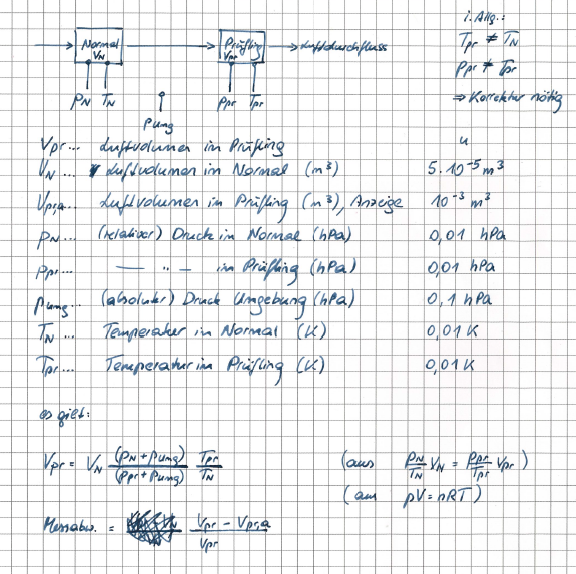 i. Allg.:
Normal
V_N
Prüfling
V_pr
Luftdurchfluss
T_pr ≠ T_N
p_pr ≠ T_pr
⇒ Korrektur nötig
p_N T_N
p_pr T_pr
p_umg
u
V_pr... Luftvolumen im Prüfling
V_N ... Luftvolumen im Normal (m³) 5·10⁻⁵ m³
V_pr,a... Luftvolumen im Prüfling (m³), Anzeige 10⁻³ m³
p_N ... (relativer) Druck im Normal (hPa) 0,01 hPa
p_pr... — " — im Prüfling (hPa) 0,01 hPa
p_umg... (absoluter) Druck Umgebung (hPa) 0,1 hPa
T_N ... Temperatur im Normal (K) 0,01 K
T_pr... Temperatur im Prüfling (K) 0,01 K
es gilt:
V_pr = V_N (p_N + p_umg)/(p_pr + p_umg) T_pr/T_N (aus p_N/T_N V_N = p_pr/T_pr V_pr)
(aus pV = nRT)
Messabw. = (V_pr − V_pr,a)/V_pr